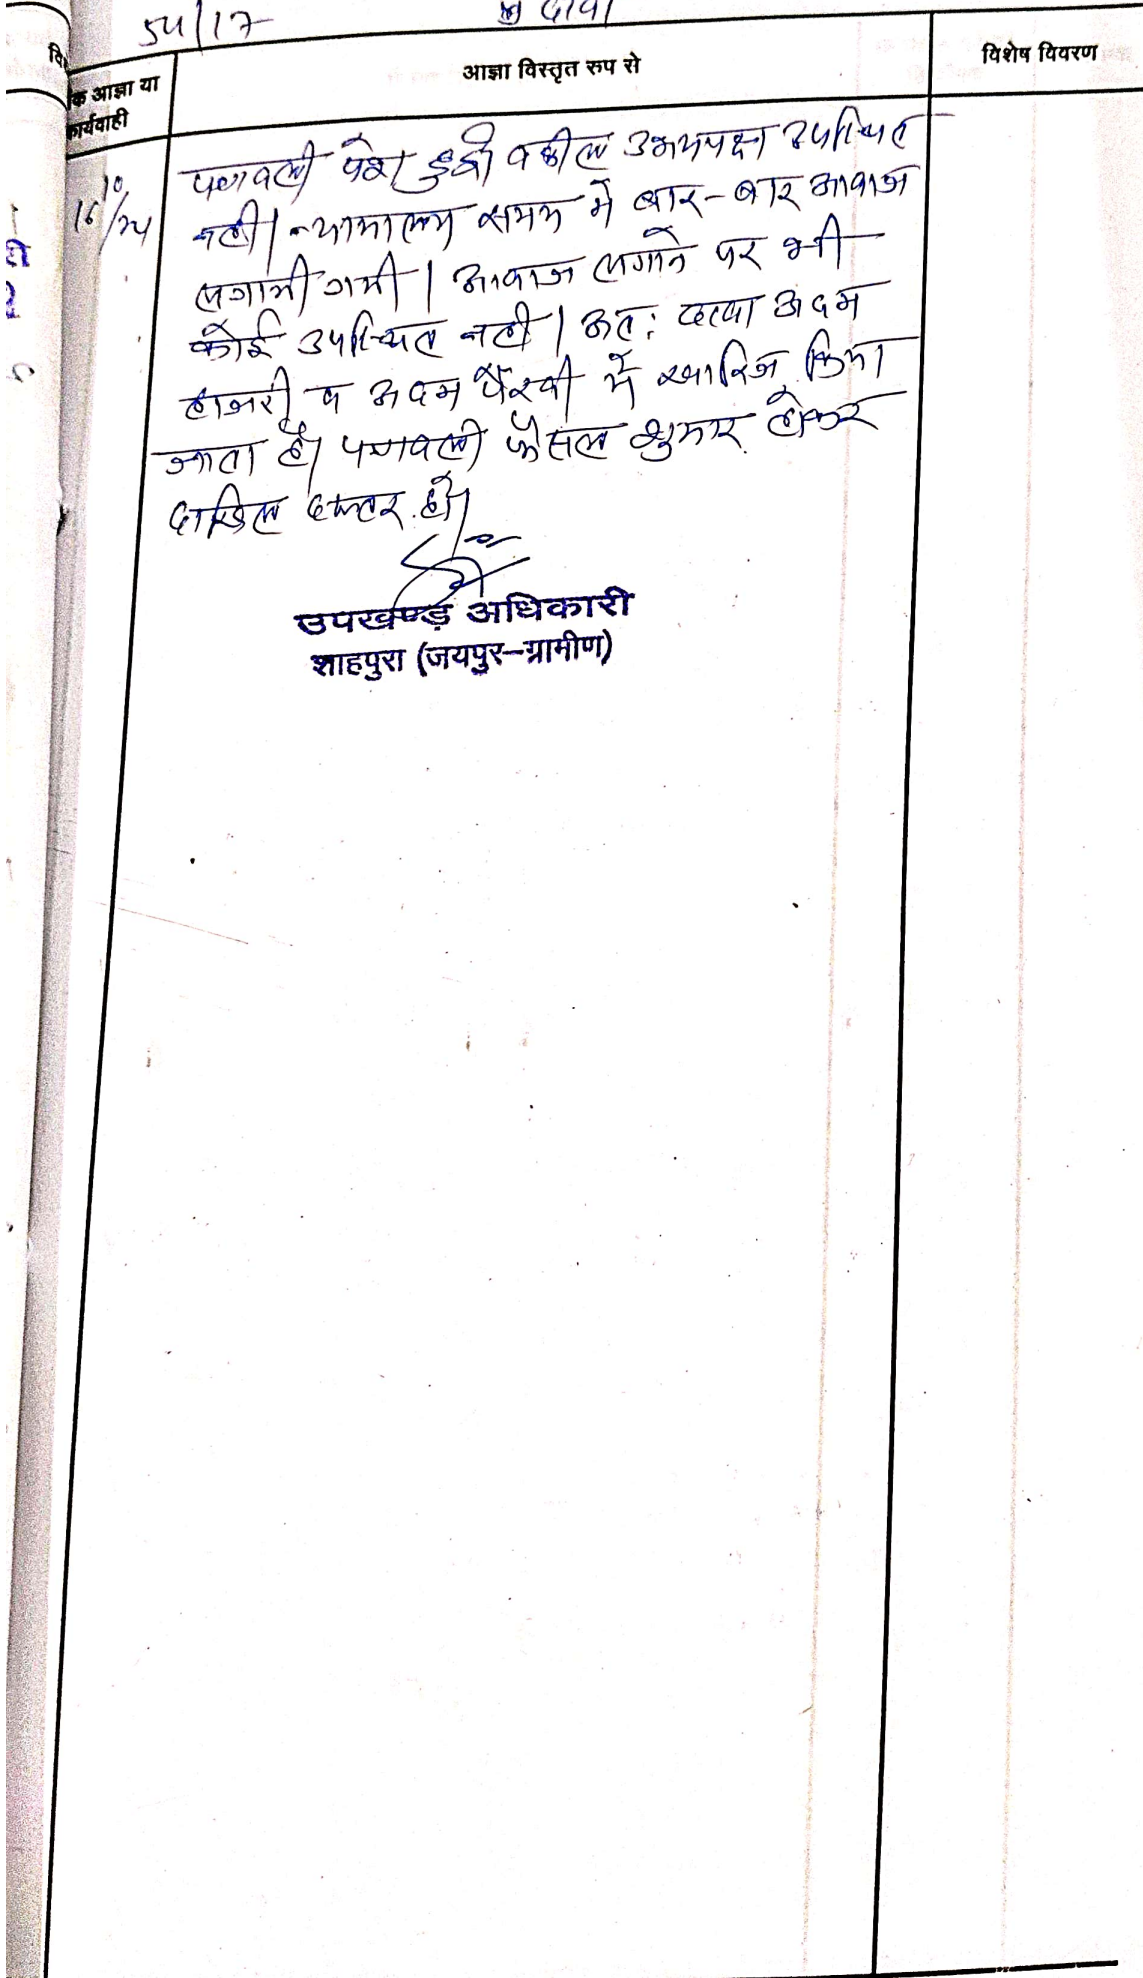 54/17 दावा
आज्ञा या
कार्यवाही
आज्ञा विस्तृत रुप से
विशेष विवरण
16/10/24
पत्रावली पेश हुई। वकील उभयपक्ष उपस्थित
नही। न्यायालय समय में बार-बार आवाज
लगायी गयी। आवाज लगाने पर भी
कोई उपस्थित नही। अत: दावा अदम
हाजरी व अदम पैरवी में खारिज किया
जाता है। पत्रावली फैसल शुमार होकर
दाखिल दफ्तर हो।
उपखण्ड़ अधिकारी
शाहपुरा (जयपुर-ग्रामीण)